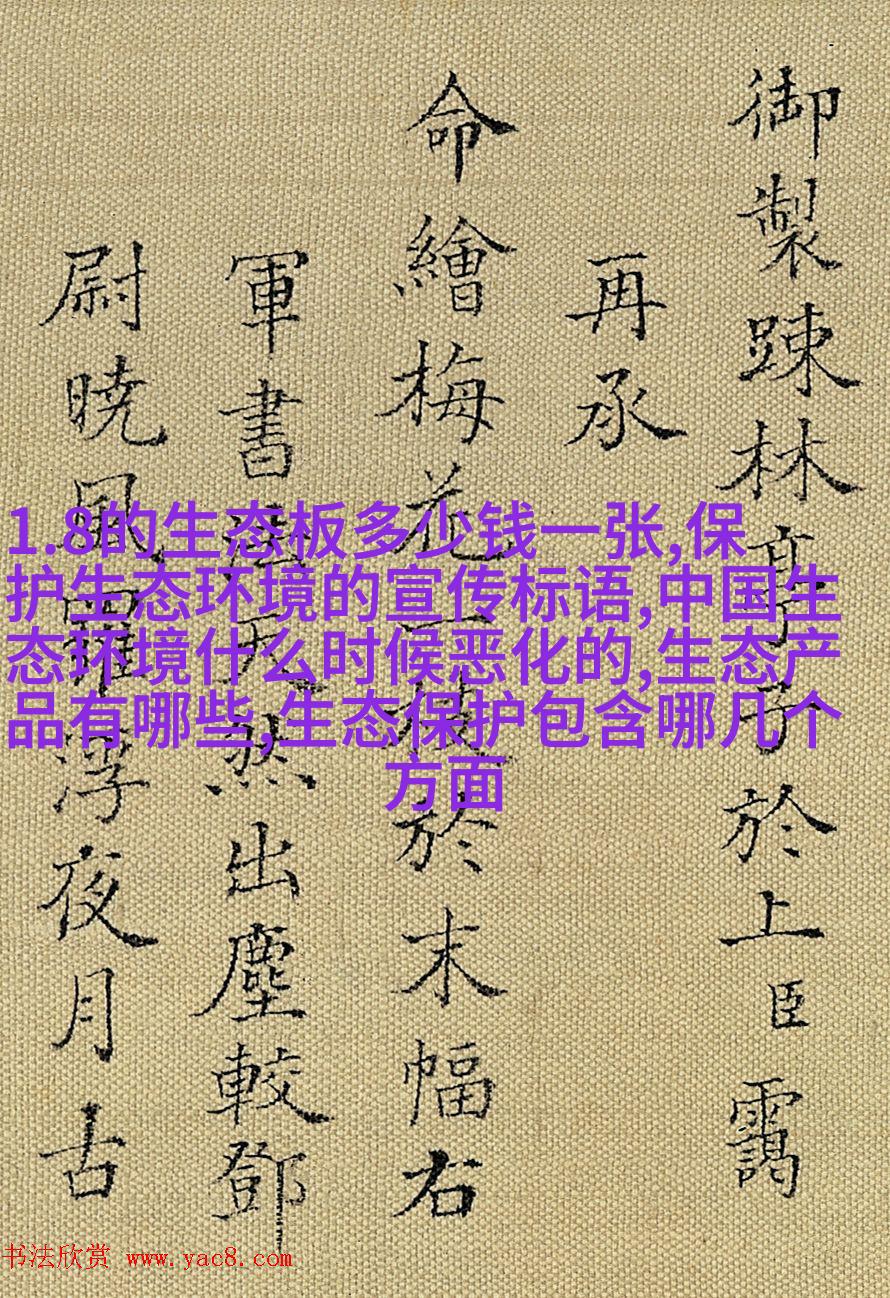 御製踈林亭子於上臣靄
再承
命繪梅花一枝於末幅右
軍書天然出塵較鄧
尉曉風羅浮夜月古
1.8的生态板多少钱一张,保
护生态环境的宣传标语,中国生
态环境什么时候恶化的,生态产
品有哪些,生态保护包含哪几个
方面
书法欣赏 www.yac8.com